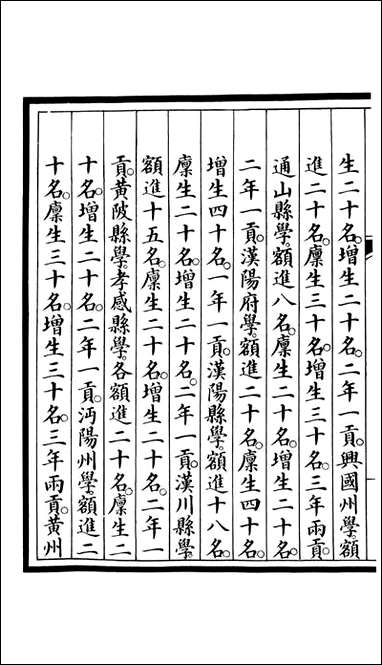 生二十名。增生二十名。二年一貢。興國州學。額
進二十名。廩生三十名。增生三十名。三年兩貢。
通山縣學。額進八名。廩生二十名。增生二十名。
二年一貢。漢陽府學。額進二十名。廩生四十名。
增生四十名。一年一貢。漢陽縣學。額進十八名。
廩生二十名。增生二十名。二年一貢。漢川縣學。
額進十五名。廩生二十名。增生二十名。二年一
貢。黃陂縣學。孝感縣學。各額進二十名。廩生二
十名。增生二十名。二年一貢。沔陽州學。額進二
十名。廩生三十名。增生三十名。三年兩貢。黃州